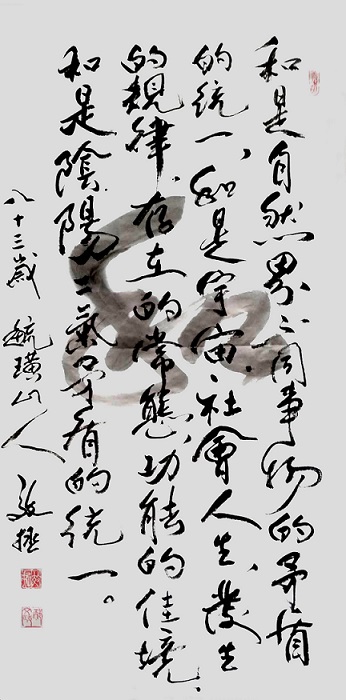 和是自然界不同事物的矛盾
的统一、和是宇宙、社會人生、發生
的規律、存在的常態、功能的佳境、
和是陰陽二氣矛盾的统一。
八十三歲 璜山人